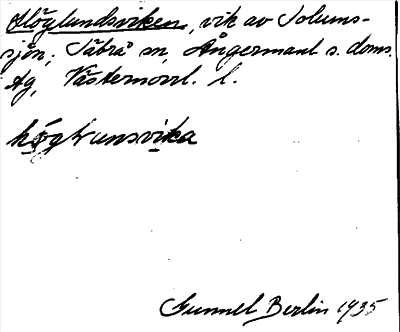 Höglundsviken, vik av Solums-
sjön; Säbrå sn, Ångermanl. s. doms.
Ag, Västernorrl. l.
högLunsvika
Gunnel Berlin 1935